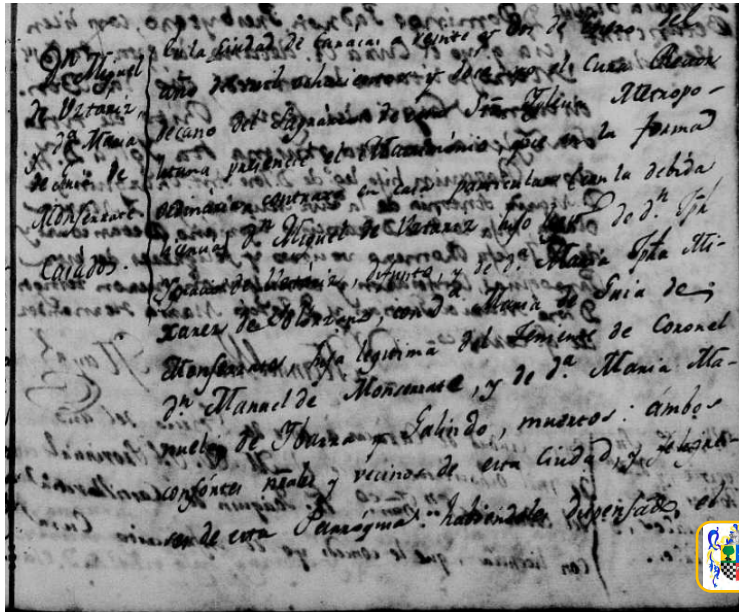 Dn. Miguel
de Ustariz,
y Da. Maria
de Guia de
Monserrate
Casados.
En la Ciudad de Caracas a veinte y dos de Enero del
año de mil ochocientos y yo el Cura Rector
decano del Sagrario de esta Sta. Iglesia Metropo-
litana presencié el Matrimonio, que en la forma
ordinaria contraxo en casa particular con la debida
licencia Dn. Miguel de Ustariz hijo legmo. de dn. Jph
Ignacio de Ustáriz, difunto, y de da. Maria Jpha Mi-
xares de Solorzano con da. Maria de Guia de
Monserrate hija legitima del Teniente de Coronel
dn. Manuel de Monserrate, y de da. Maria Ma-
nuela de Ibarra y Galindo, muertos: ámbos
consórtes nãles y vecinos de esta Ciudad, y feligre-
ses de esta Parróquia: habiendoles dispensado el